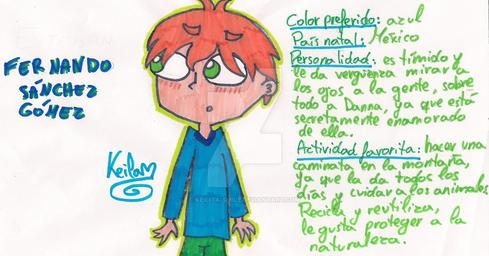 FERNANDO
SÁNCHEZ
GÓMEZ
Keilam
Color preferido: azul
País natal: México
Personalidad: es tímido y
le da vergüenza mirar a
los ojos a la gente, sobre
todo a Danna, ya que está
secretamente enamorado
de ella.
Actividad favorita: hacer una
caminata en la montaña,
ya que la da todos los
días y cuidar a los animales.
Recicla y reutiliza,
le gusta proteger a la
naturaleza.